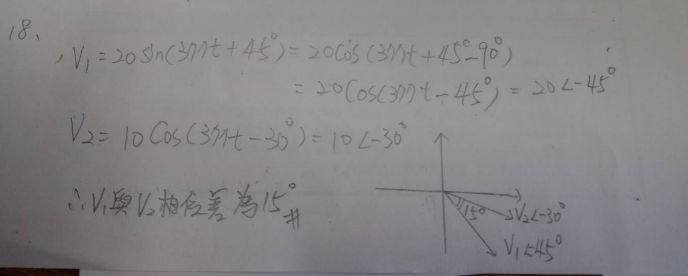 18、
V₁=20sin(377t+45°)=20cos(377t+45°-90°)
=20cos(377t-45°)=20∠-45°
V₂=10cos(377t-30°)=10∠-30°
∴V₁與V₂相位差為15°#
15°
V₂∠-30°
V₁∠45°